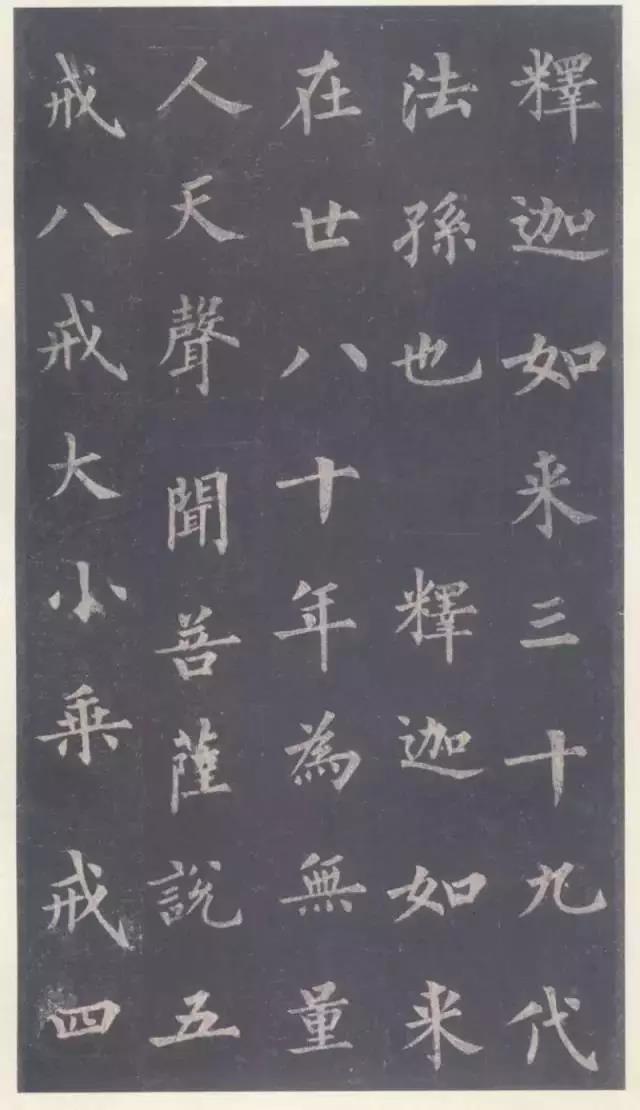 釋迦如来三十九代
法孫也釋迦如来
在世八十年為無量
人天聲聞菩薩說五
戒八戒大小乗戒四